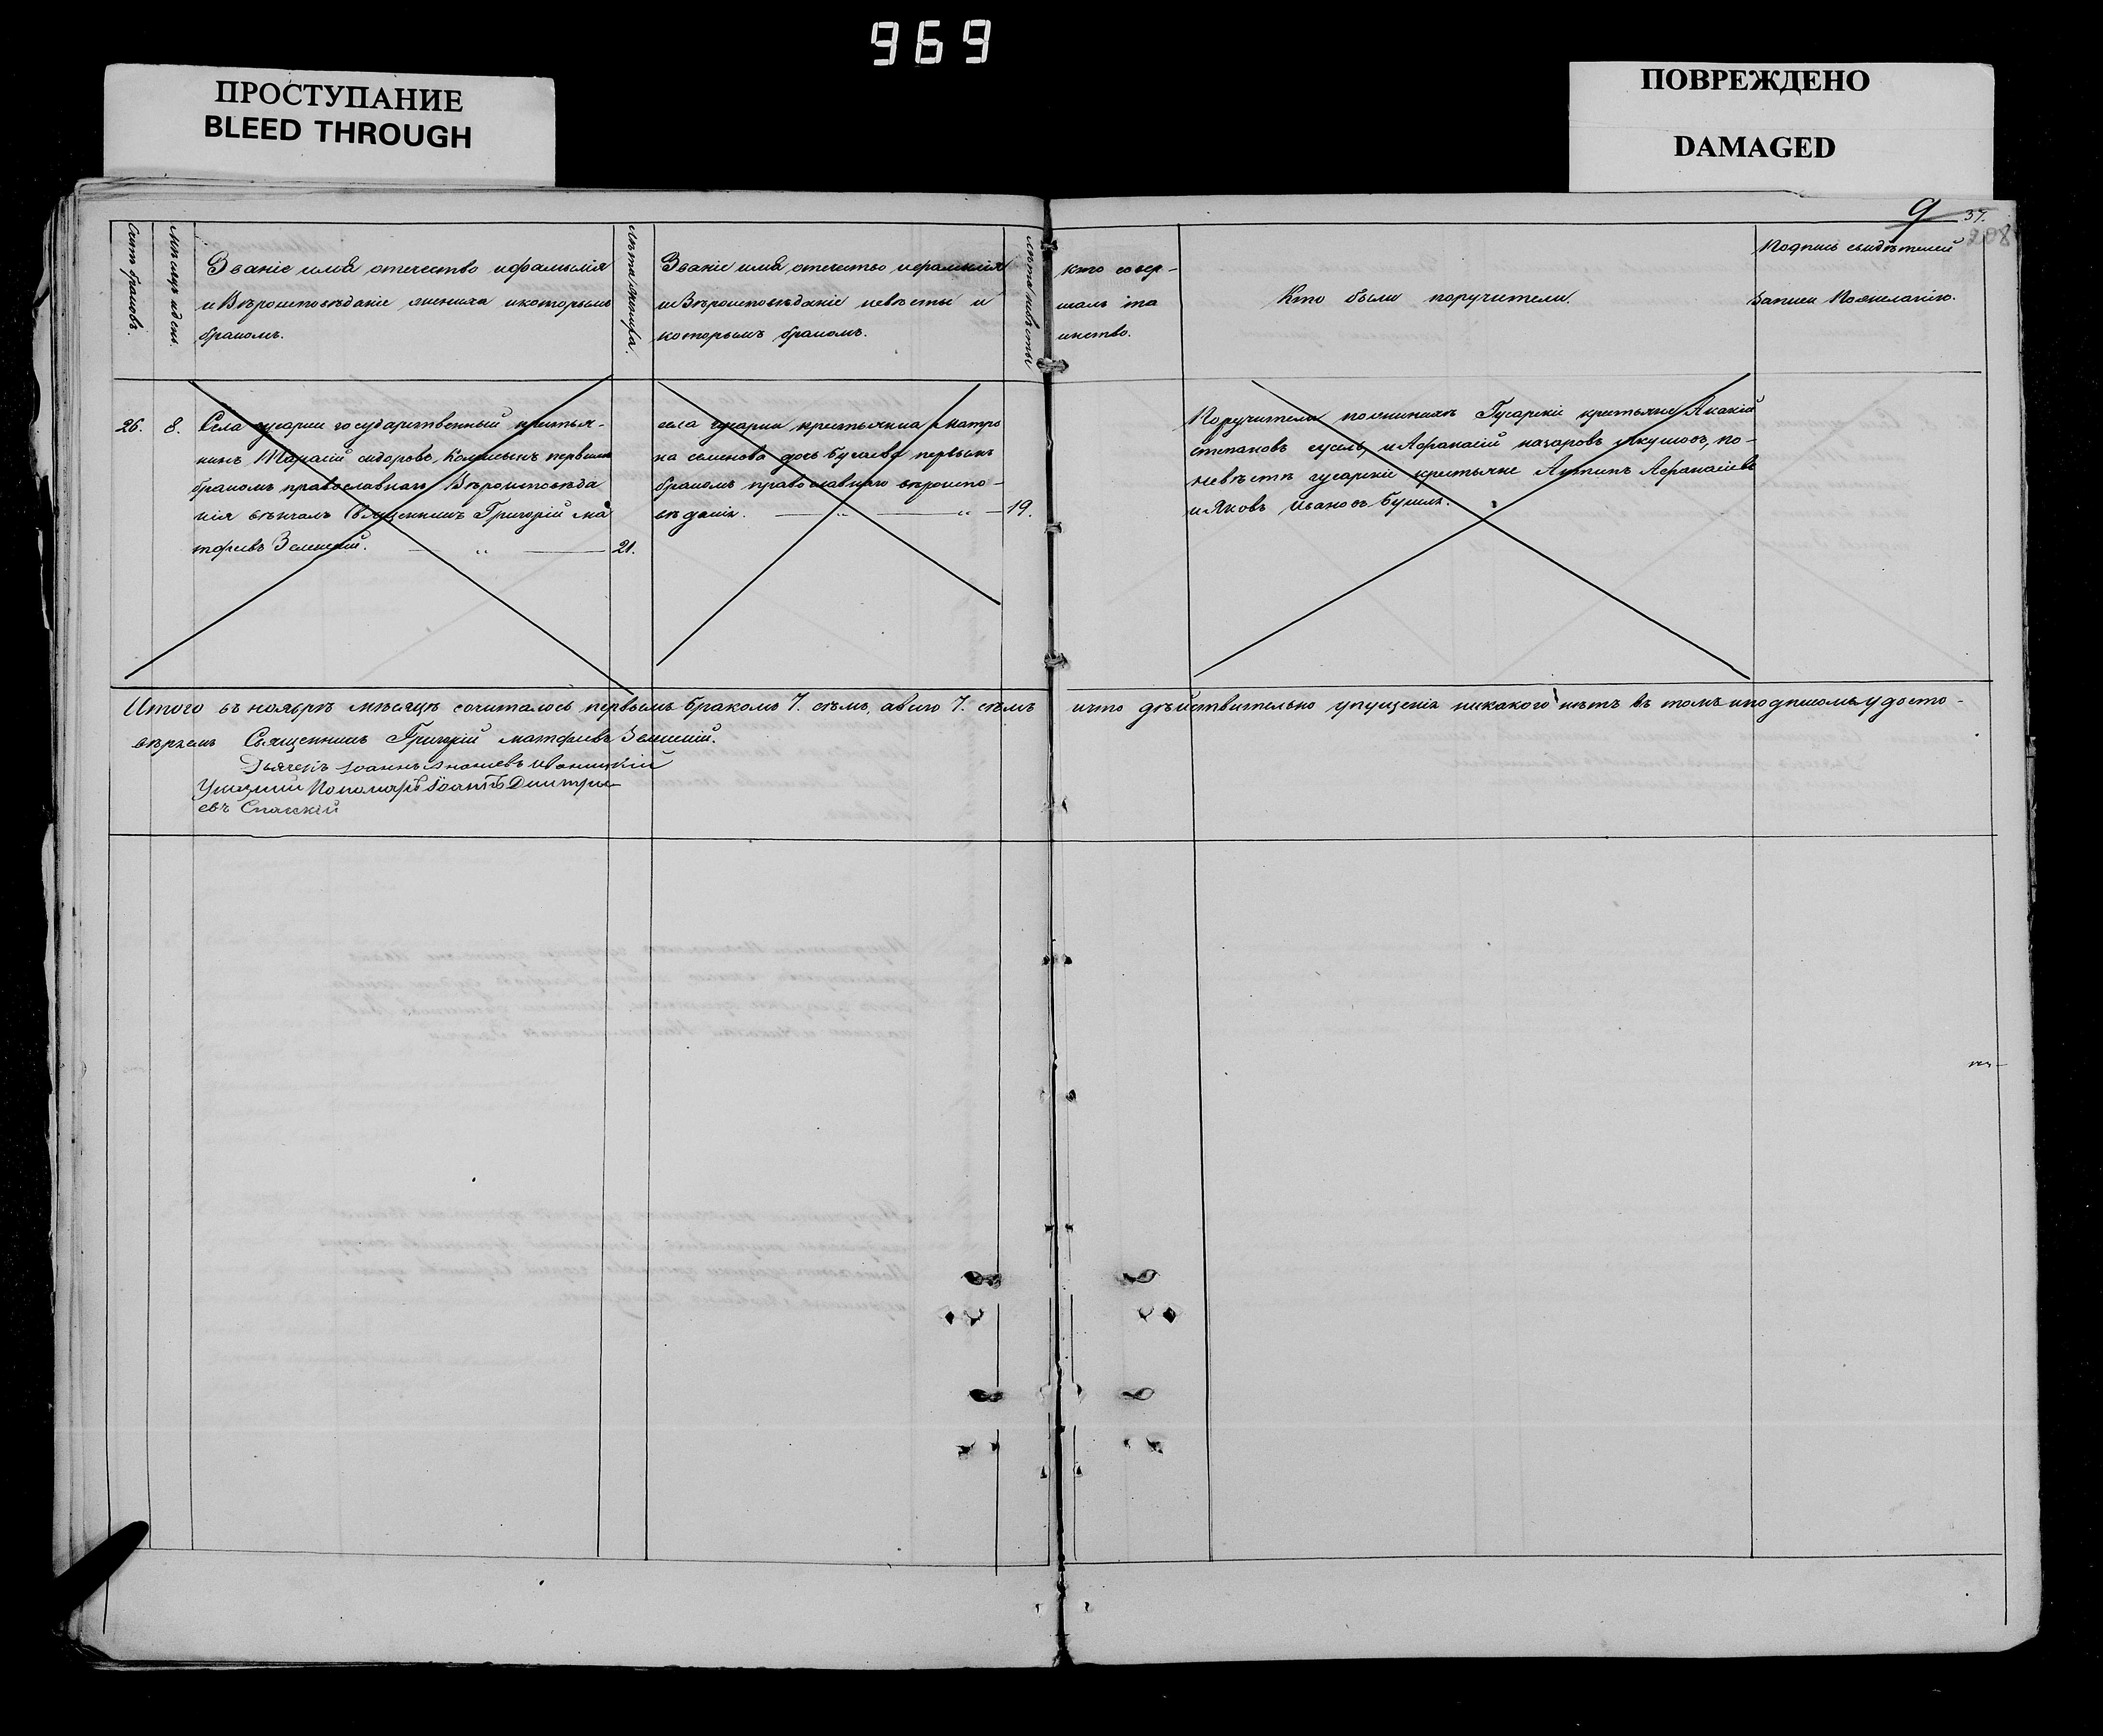 969
ПРОСТУПАНИЕ
BLEED THROUGH
ПОВРЕЖДЕНО
DAMAGED
9 37.
208
Счетъ браковъ.
Мѣсяцъ и день.
Званіе имя отечество и фамилія
и Вѣроисповѣданіе жениха и которымъ
бракомъ.
лѣта жениха.
Званіе имя отечество и фамилія
и Вѣроисповѣданіе невѣсты и
которымъ бракомъ.
лѣта невѣсты
кто совер-
шалъ та
инство.
Кто были поручители.
Подпись свидѣтелей
записи По желанію.
26. 8. Села государственный крестья-
нинъ сидоровъ первымъ
бракомъ православнаго Вѣроисповѣда
нія вѣнчалъ Священникъ Григорій ма
тфеевъ Зеленскій. 21.
села крестьянка матро
на семенова дочь первымъ
бракомъ православнаго вѣроиспо-
вѣданія. 19.
Поручители по женихѣ крестьяне Акакій
степановъ и Афанасій назаровъ по-
невѣстѣ крестьяне Афанасіевъ
и Яковъ Ивановъ
Итого въ ноябрѣ мѣсяцѣ сочиталось первымъ бракомъ 7. семь, а всего 7. семь и что дѣйствительно упущенія никакого нѣтъ въ томъ и подписомъ удосто-
вѣряемъ Священникъ Григорій матфеевъ Зеленскій.
Дьячекъ Іоаннъ
Пономарь Іоаннъ Дмитрі-
евъ Спасскій